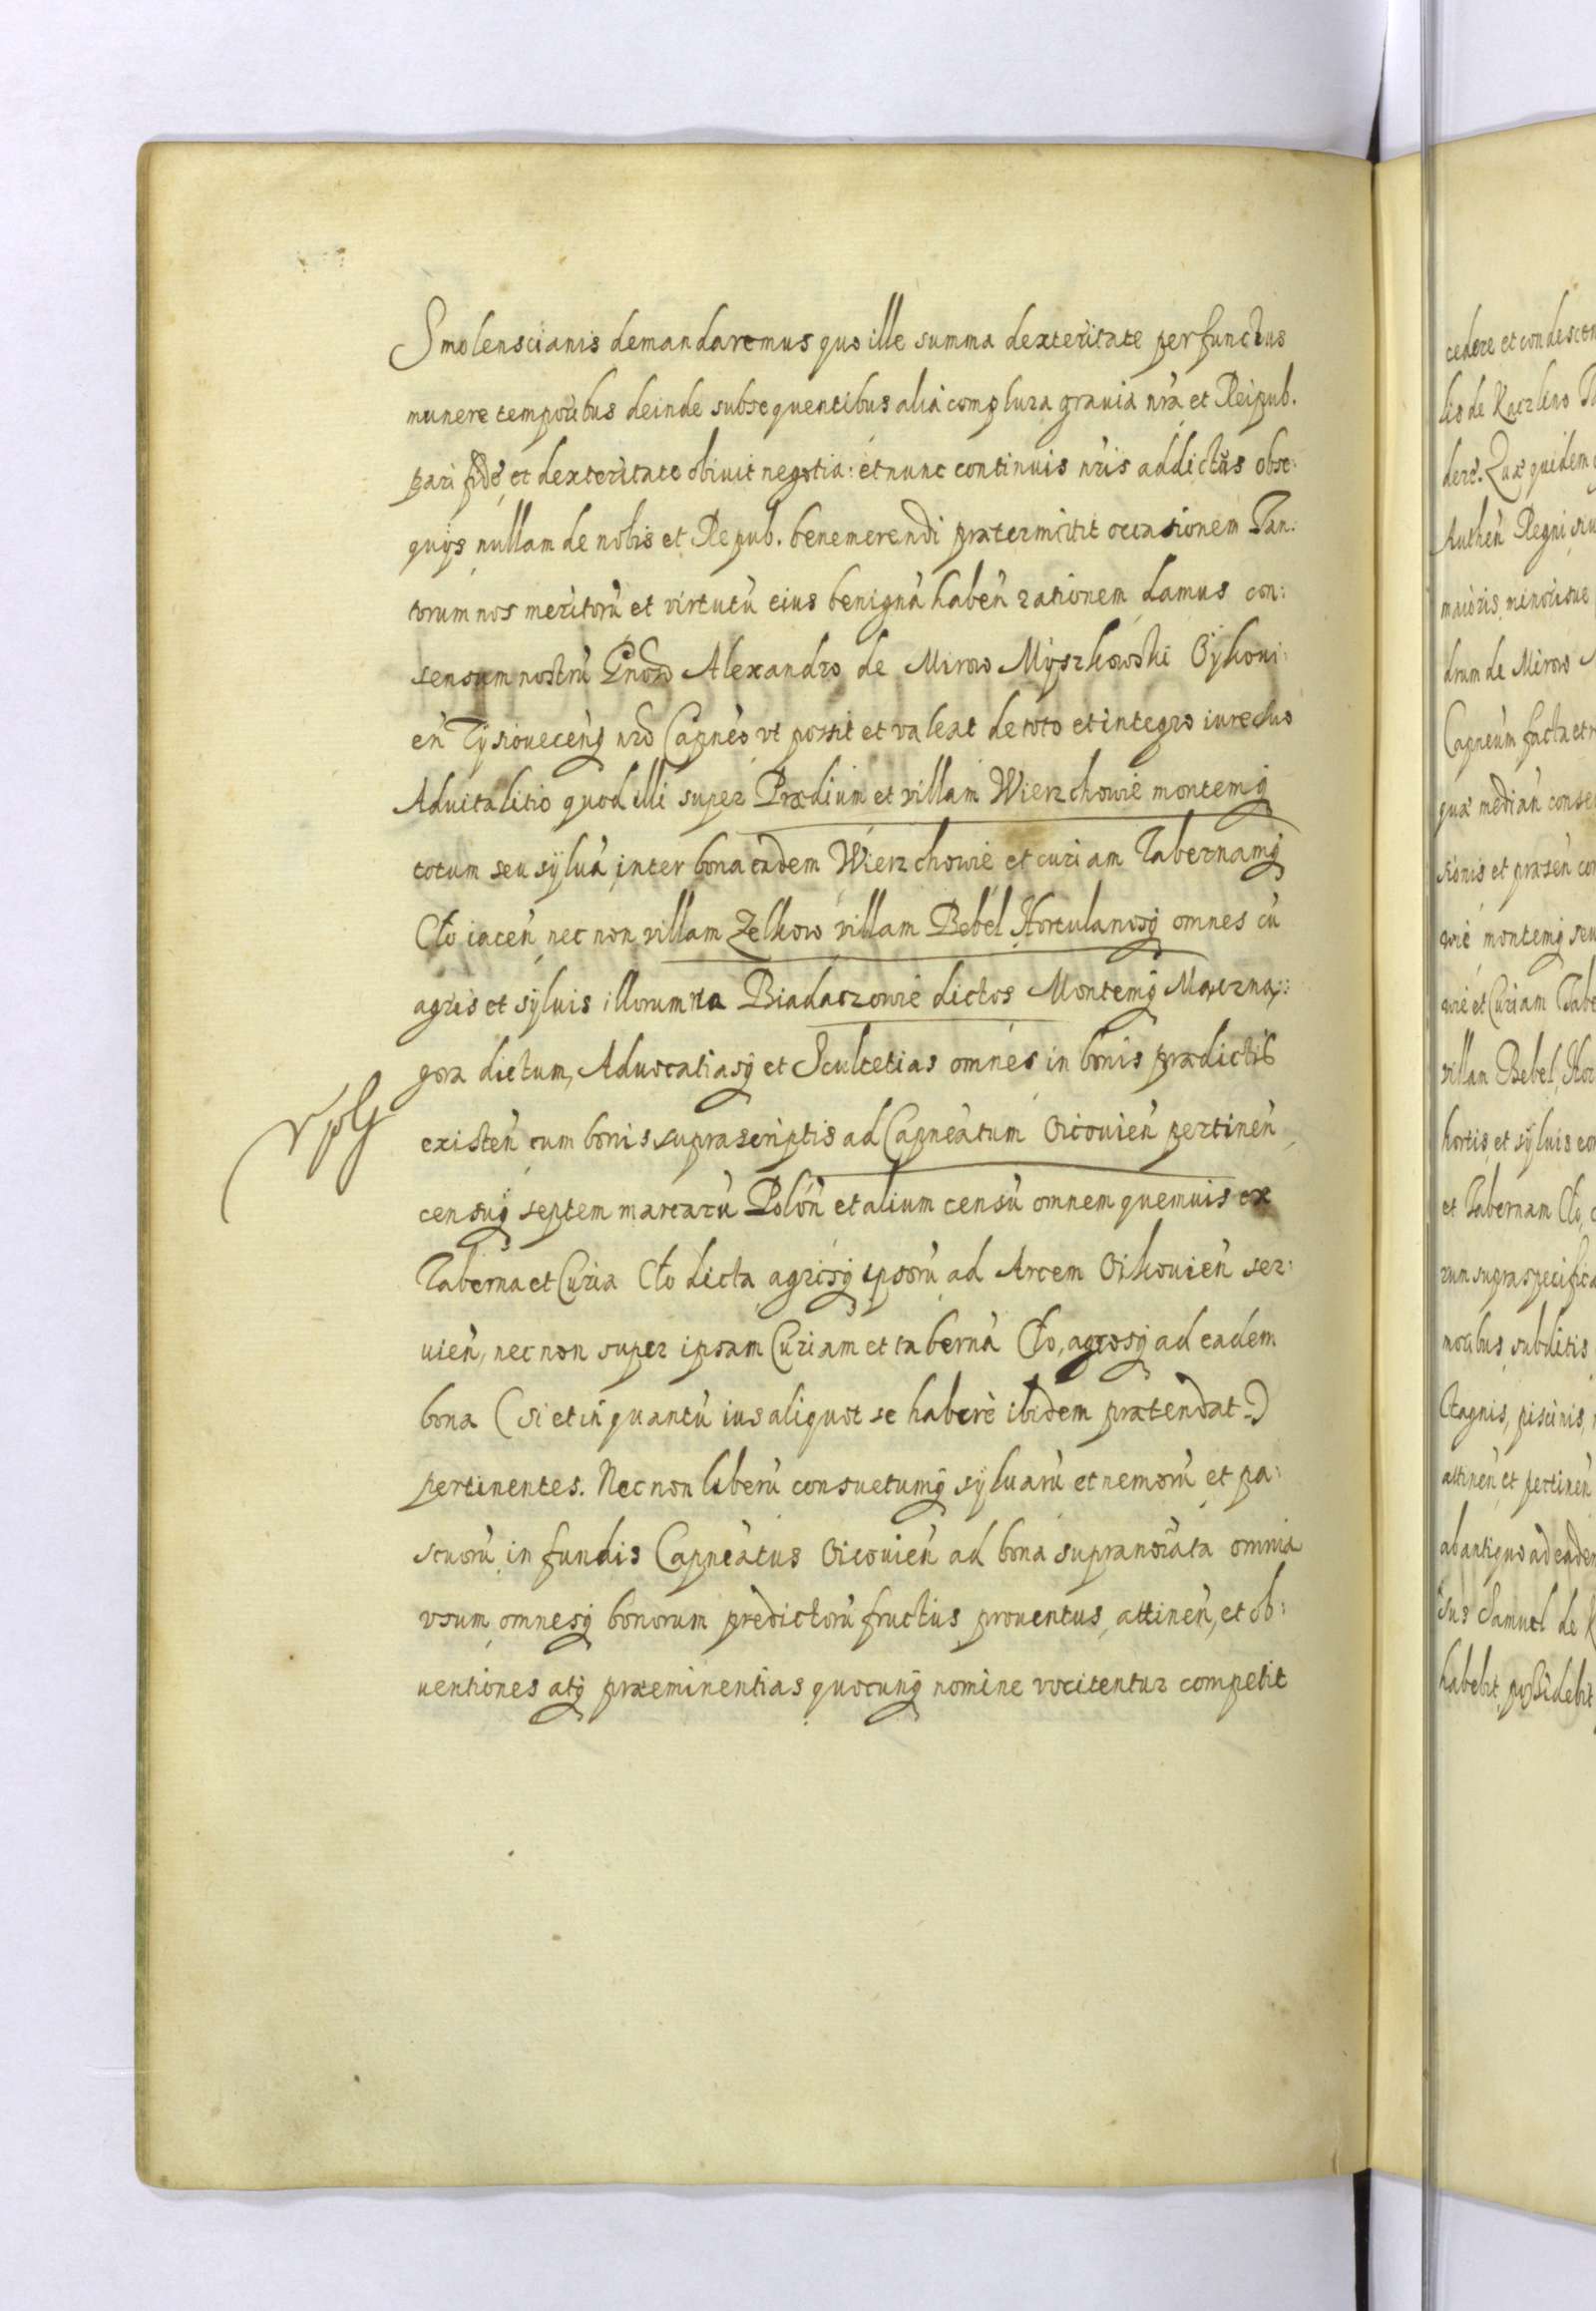 Smolenscianis demandaremus quo ille summa dexteritate perfunctus
munere temporibus deinde subsequentibus alia complura grauia nrã et Reipub.
pari fide et dexteritate obiuit negotia: et nunc continuis nris addictus obse:
quijs nullam de nobis et Repub. benemerendi prætermittit occasionem Tan:
torum nos meritorũ et virtutũ eius benignã habeñ rationem damus con:
sensum nostrũ Gnoso Alexandro de Mirow Myszkowski Oÿkoui:
eñ Tÿsiouecenq nro Capneo vt possit et valeat de toto et integro iure suo
Aduitalitio quod illi super Prædium et villam Wierzchowie montemq
totum seu sÿluã inter bona eadem Wierzchowie et curiam Tabernamq
Cło iaceñ nec non villam Zelkow villam Bebel Hortulanosq omnes cũ
agris et sÿluis illorum na Biadaczowie dictos Montemq Maczna:
gora dictum, Aduocatiasq et Scultetias omnes in bonis prædictis
existeñ cum bonis suprascriptis ad Capneatum Oicouieñ pertineñ
censuq septem marcarũ Poloñ et alium censũ omnem quemuis ex
Taberna et Curia Cło dicta agrisq ipsorũ ad Arcem Oikouieñ ser:
uieñ, nec non super ipsam Curiam et tabernã Cło, agrosq ad eadem
bona (si et in quantũ ius aliquot se habere ibidem prætendat)
pertinentes. Nec non liberũ consuetumq sÿluarũ et nemorũ et pa:
scuorũ in fundis Capneatus Oicouieñ ad bona supranoiata omnia
vsum omnesq bonorum predictorũ fructus prouentus, attineñ, et ob:
uentiones atq præeminentias quocunq nomine vocitentur competit
cedere et condescen
lio de Kaczlino
dere. Quæ quidem
Autheñ Regni siu
maioris minorisue
drum de Mirow
Capneum facta et
qua mediañ conse
sionis et præseñ con
wie montemq seu
wie et Curiam Tabe
villam Bebel Hor
hortis et sÿluis eor
et Tabernam Cło,
rum supraspecifica
moribus subditis
Stagnis, piscinis,
attineñ et pertineñ
ab antiquo ad eadem
sus Samuel de
habebit, possidebit